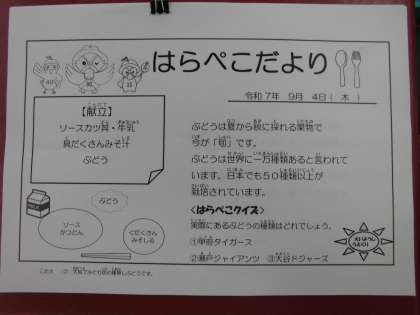 はらぺこだより
令和7年 9月 4日(木)
【献立】
ソースカツ丼・牛乳
具だくさんみそ汁
ぶどう
ぶどうは夏から秋に採れる果物で
今が「旬」です。
ぶどうは世界に一万種類あると言われて
います。日本でも50種類以上が
栽培されています。
ぶどう
ソース
かつどん
ぐだくさん
みそしる
<はらぺこクイズ>
実際にあるぶどうの種類はどれでしょう。
①甲府タイガース
②瀬戸ジャイアンツ ③大谷ドジャース